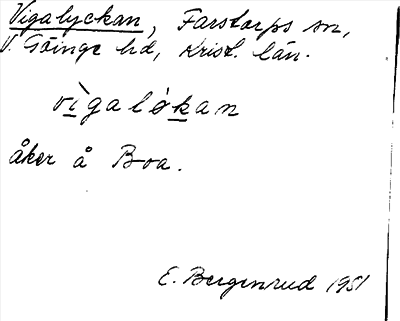 Vigalyckan, Farstorps sn,
V. Göinge hd, Krist. län.
vìgaløkan
åker å Boa.
E. Bergenrud 1951